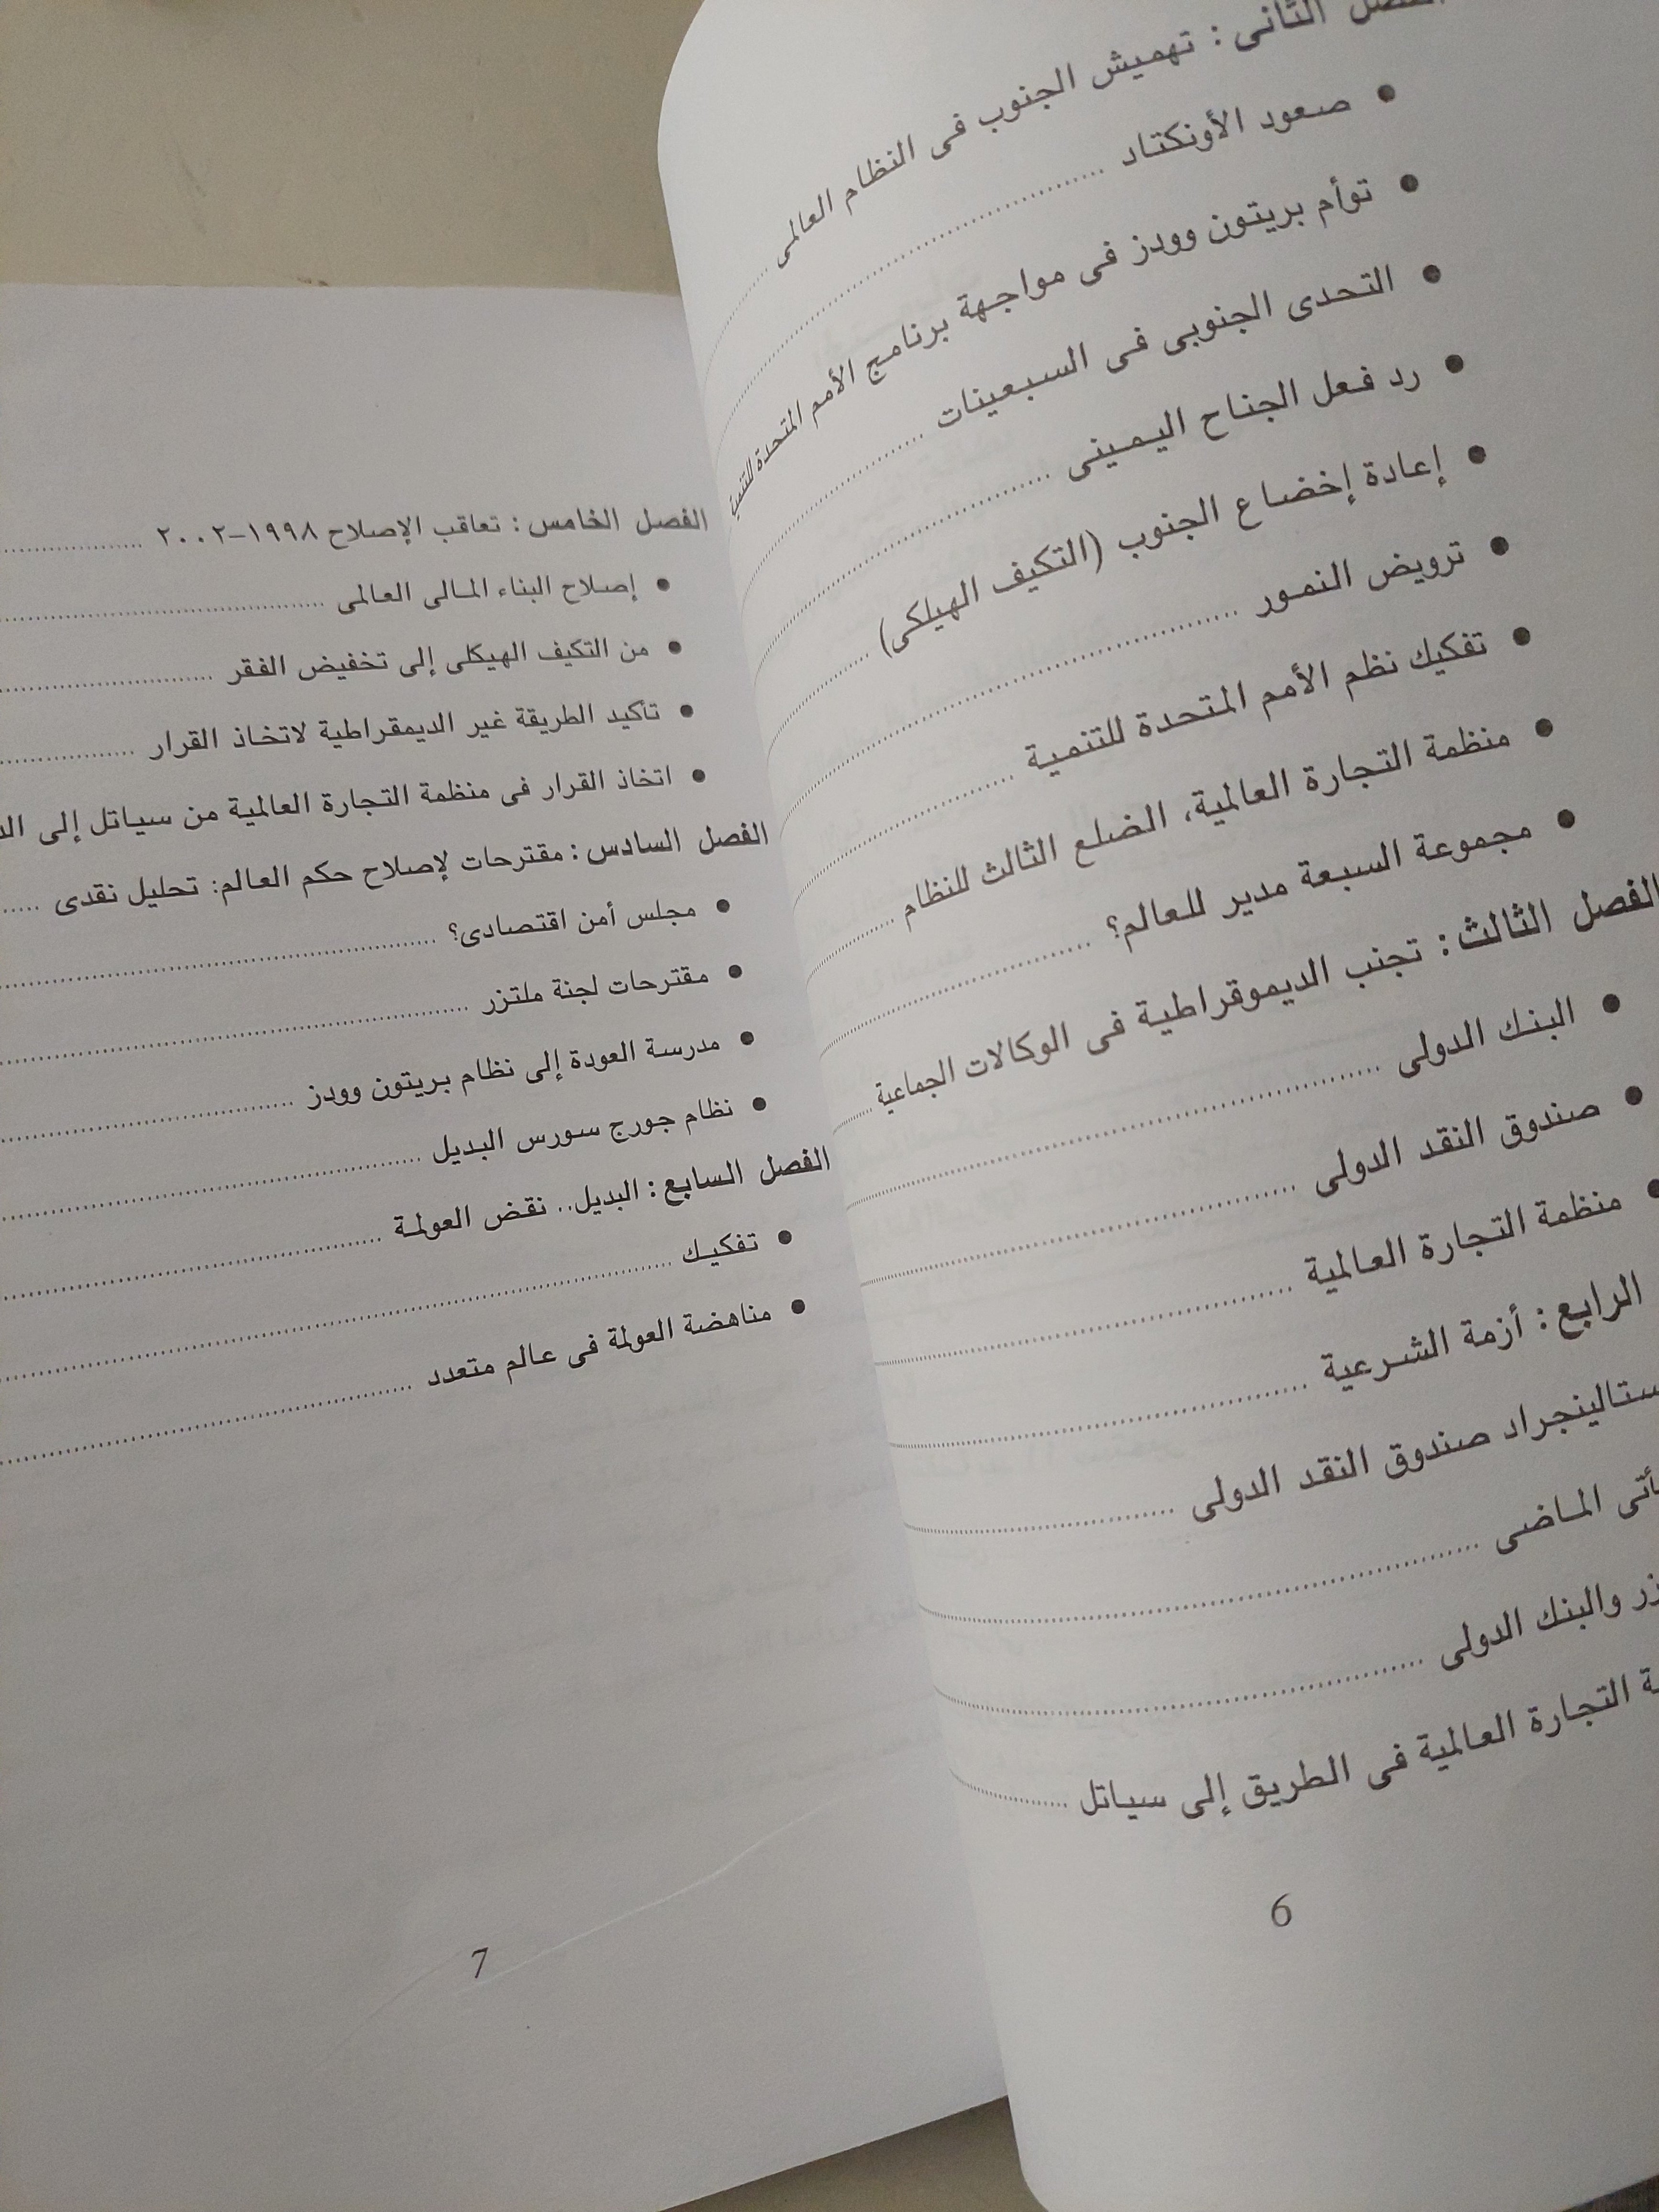 الفصل الثانى : تهميش الجنوب فى النظام العالمى
• صعود الأونكتاد
• توأم بريتون وودز فى مواجهة برنامج الأمم المتحدة للتنمية
• التحدى الجنوبى فى السبعينات
• رد فعل الجناح اليمينى
• إعادة إخضاع الجنوب (التكيف الهيلكى)
• ترويض النمور
• تفكيك نظم الأمم المتحدة للتنمية
• منظمة التجارة العالمية، الضلع الثالث للنظام
• مجموعة السبعة مدير للعالم؟
الفصل الثالث : تجنب الديموقراطية فى الوكالات الجماعية
• البنك الدولى
• صندوق النقد الدولى
• منظمة التجارة العالمية
الرابع : أزمة الشرعية
ستالينجراد صندوق النقد الدولى
الماضى
والبنك الدولى
التجارة العالمية فى الطريق إلى سياتل
6
الفصل الخامس : تعاقب الإصلاح ١٩٩٨-٢٠٠٢
• إصلاح البناء المالى العالمى
• من التكيف الهيكلى إلى تخفيض الفقر
• تأكيد الطريقة غير الديمقراطية لاتخاذ القرار
• اتخاذ القرار فى منظمة التجارة العالمية من سياتل إلى
الفصل السادس : مقترحات لإصلاح حكم العالم: تحليل نقدى
• مجلس أمن اقتصادى؟
• مقترحات لجنة ملتزر
• مدرسة العودة إلى نظام بريتون وودز
• نظام جورج سورس البديل
الفصل السابع : البديل.. نقض العولمة
• تفكيك
• مناهضة العولمة فى عالم متعدد
7